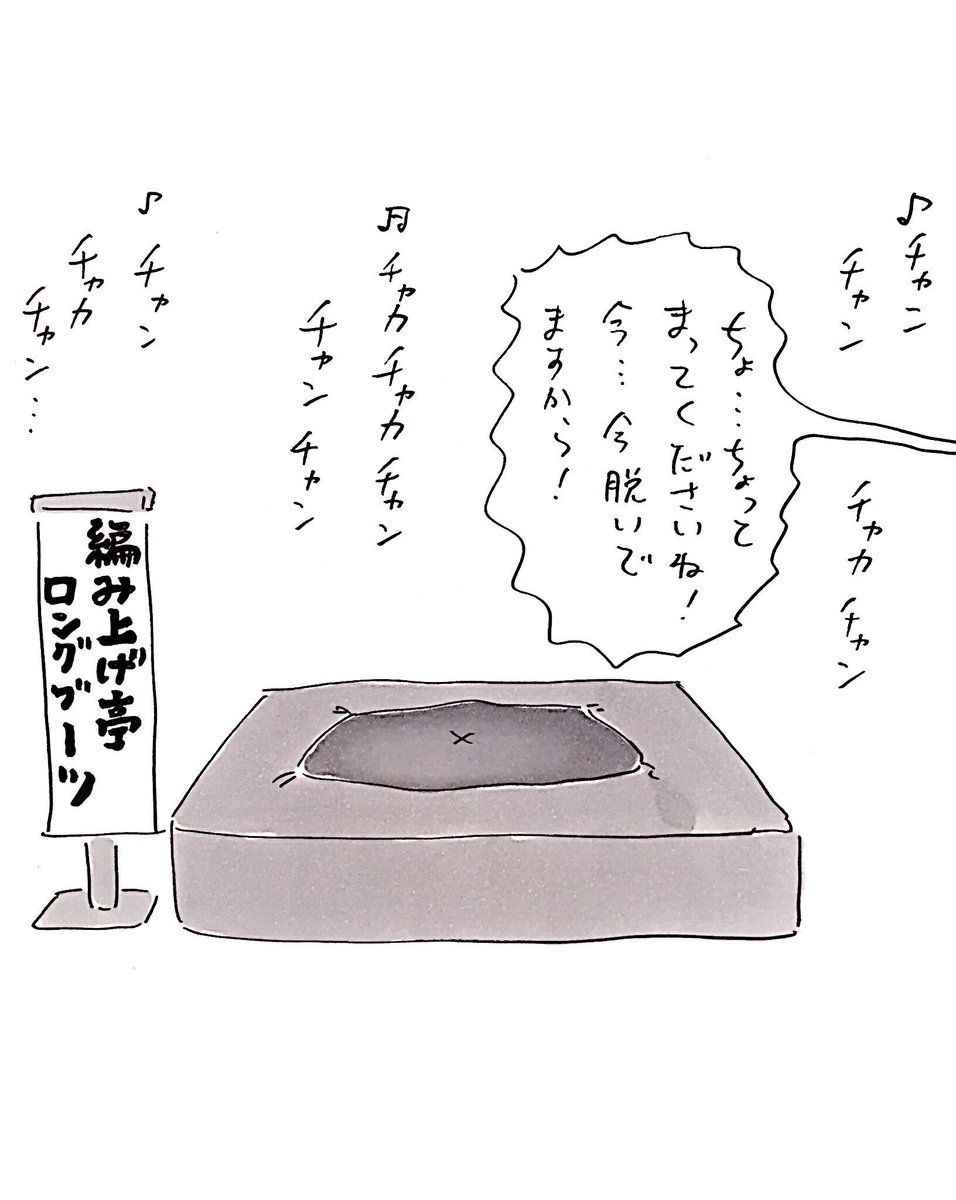 ♪チャン
チャン
チャカチャン
ちょ…ちょって
まってくださいね!
今…今脱いで
ますから!
♫チャカチャカチャン
チャンチャン
♪チャン
チャカ
チャン…
編み上げ亭
ロングブーツ